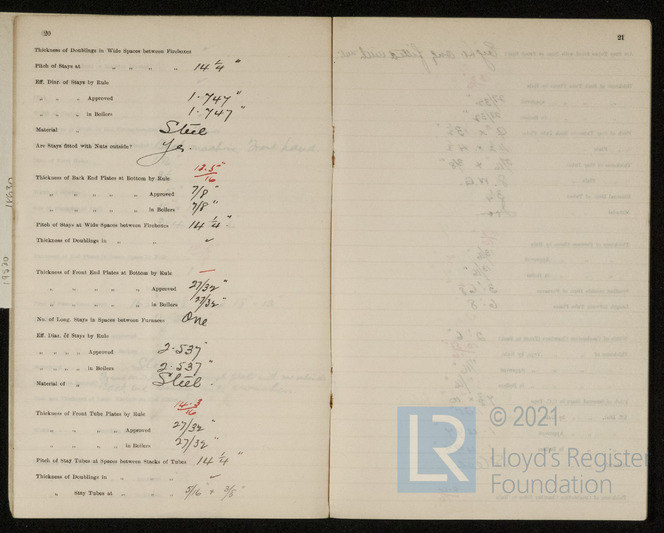 20
Thickness of Doublings in Wide Spaces between Fireboxes
Pitch of Stays at „ „ „ „ „ 14 1/4"
Eff. Diar. of Stays by Rule
„ „ „ Approved 1.747"
„ „ „ in Boilers 1.747"
Material „ Steel
Are Stays fitted with Nuts outside? Yes.
Thickness of Back End Plates at Bottom by Rule 13.5/16"
„ „ „ „ „ Approved 7/8"
„ „ „ „ „ in Boilers 7/8"
Pitch of Stays at Wide Spaces between Fireboxes 14 1/4"
Thickness of Doublings in „ „ ✓
Thickness of Front End Plates at Bottom by Rule —
„ „ „ „ „ Approved 27/32"
„ „ „ „ „ in Boilers 27/32"
No. of Long. Stays in Spaces between Furnaces One
Eff. Diar. of Stays by Rule
„ „ „ Approved 2.537"
„ „ „ in Boilers 2.537"
Material of „ Steel.
Thickness of Front Tube Plates by Rule 14.3/16
„ „ „ „ Approved 27/32"
„ „ „ „ in Boilers 27/32"
Pitch of Stay Tubes at Spaces between Stacks of Tubes 14 1/4"
Thickness of Doublings in „ „ „ ✓
„ Stay Tubes at „ „ „ 5/16" & 3/8"
21
© 2021
LR
Lloyd's Register
Foundation